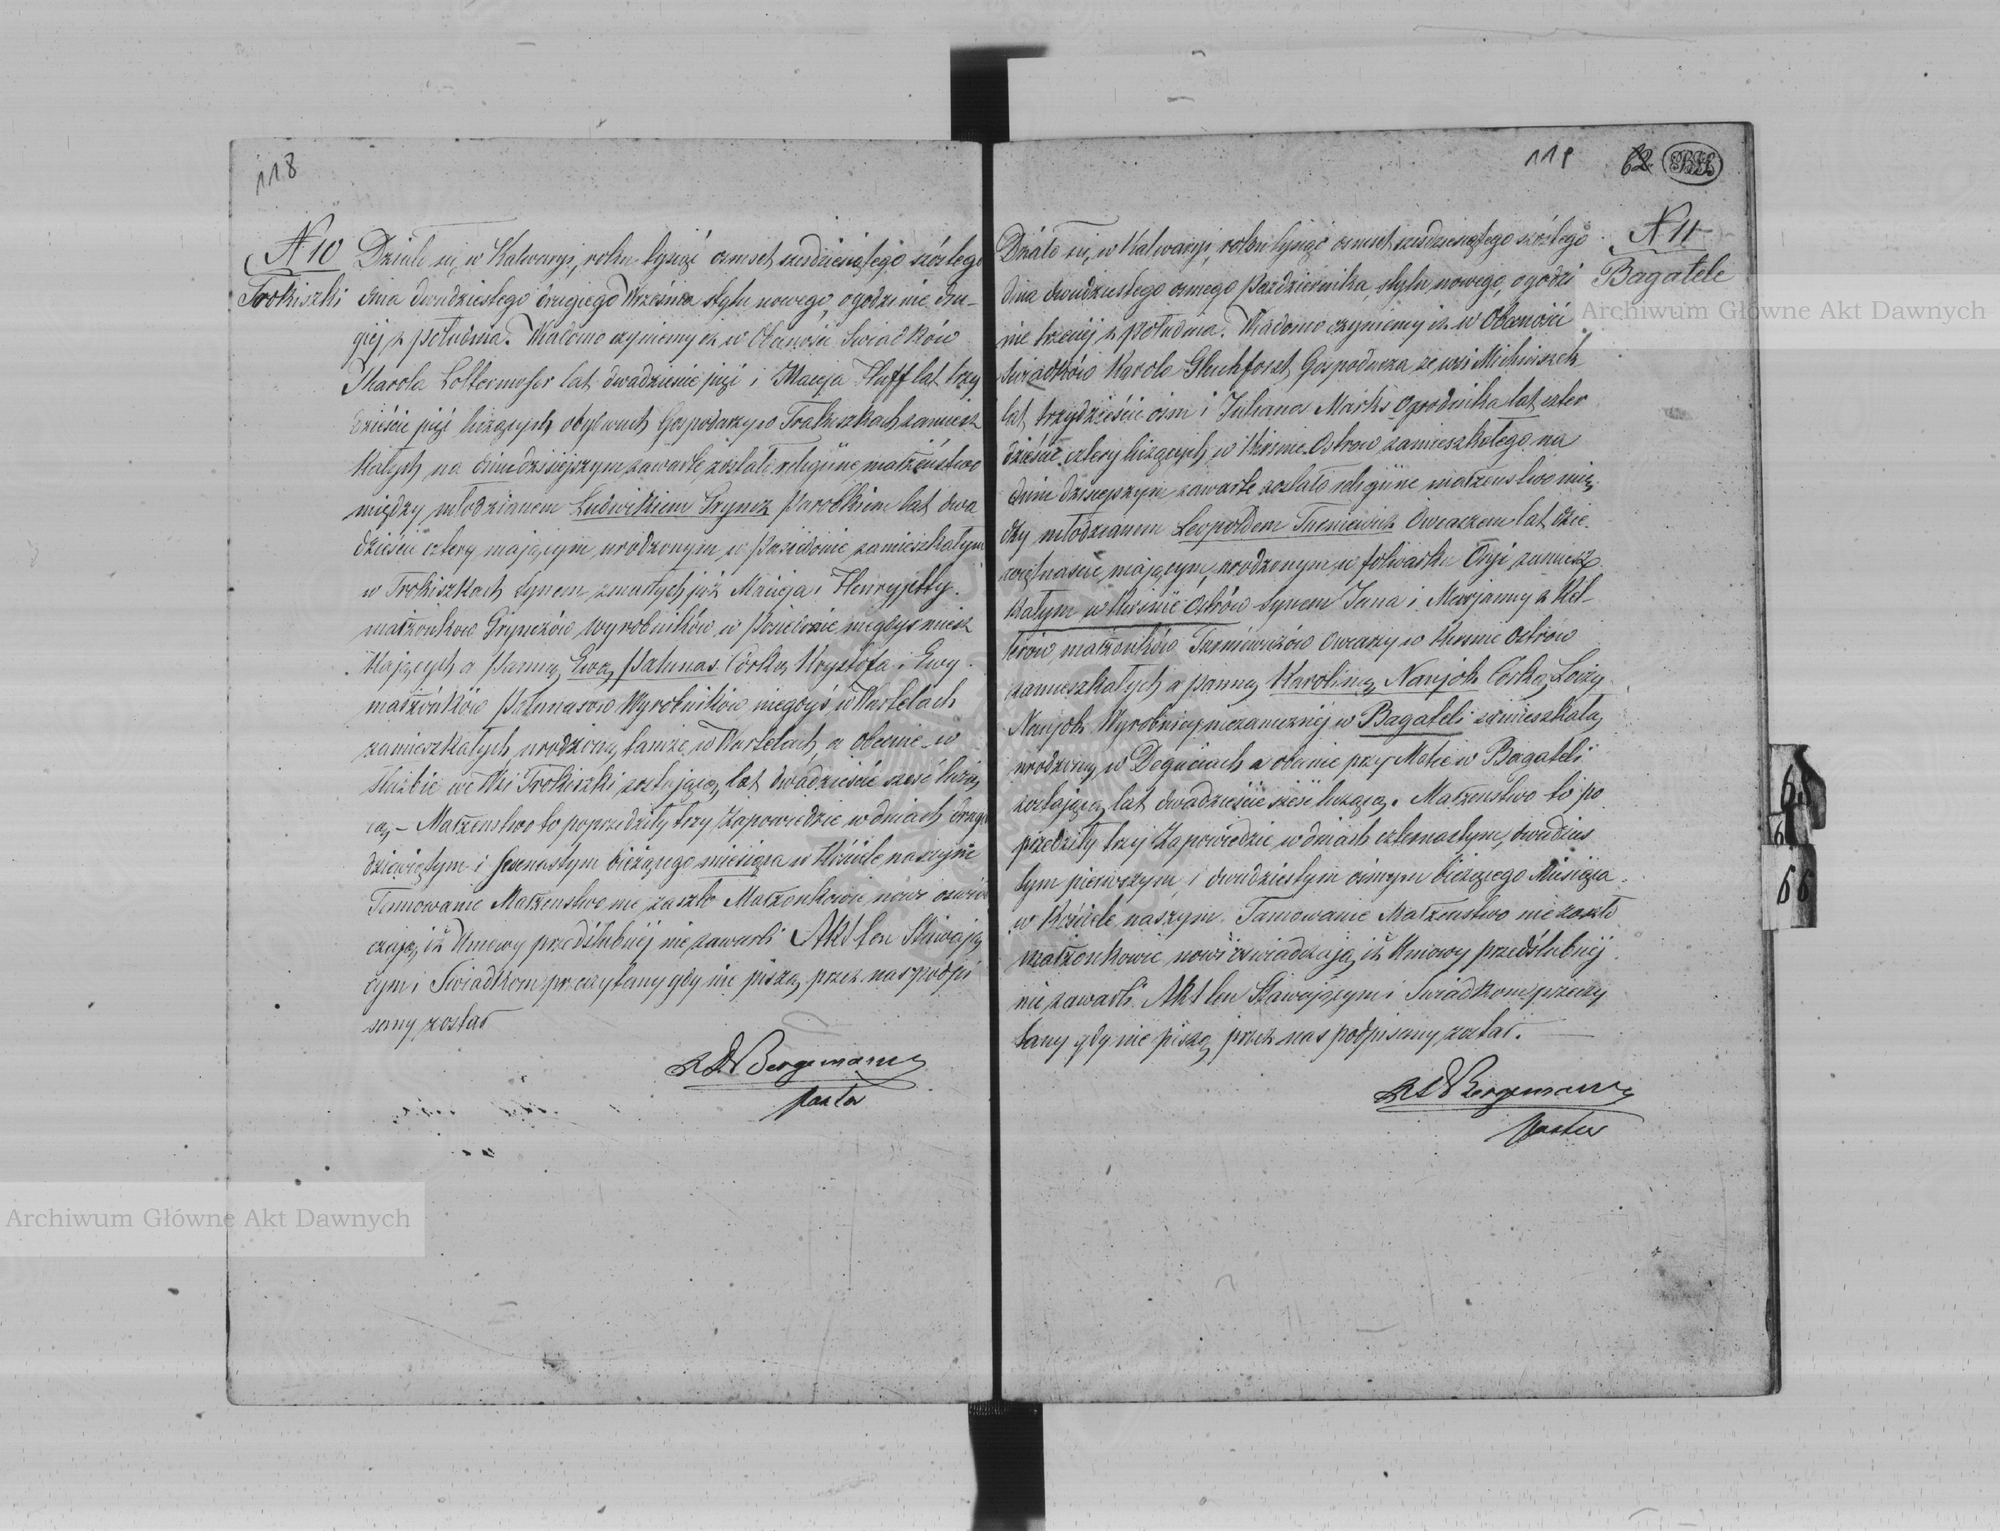 118
N 10
Trokiszki
Działo się w Kalwaryi, roku tysiąć ośmset sześdziesiątego szóstego
dnia dwudziestego drugiego Września stylu nowego, o godzinie dru-
giej z południa. Wiadomo czynimy iż w Obecności Swiadków
Karola Loltermoser lat dwadzieście pięć i Macieja Huff lat trzy
dzieście pięć liczących obydwuch Gospodarzy w Trakiszkach zamiesz
kałych, na dniu dzisiejszym zawarte zostało religijne małżeństwo
między młodzianem Ludwikiem Grynez Parobkiem lat dwa
dzieście cztery mającym, urodzonym w zamieszkałym
w Trokiszkach synem zmarłych już Macieja i Henryjetty
małżonków Grynezów Wyrobników w niegdyś miesz
kających a Panną Ewą Patunas Córką Krysztofa i Ewy
małżónków Patunasów Wyrobników niegdyś w Kartelach
zamieszkałych urodzoną tamże w Kartelach, a obecnie w
służbie we Wsi Trokiszki zostającą, lat dwadzieście sześć liczą
cą, – Małżenstwo to poprzedziły trzy Zapowiedzie w dniach drugi
dziewiątym i szesnastym bieżącego miesiąca w Kościele naszym
Tamowanie Małżenstwo nie zaszło Małżonkowie nowi oświad
czają, iż Umowy przedślubnéj nie zawarli Akt ten Stawają
cym i Swiadkom przeczytany gdy nie piszą, przez nas podpi
sany został
Bergemann
Pastor
119
62
N 11
Bagatele
Działo się w Kalwaryi, roku tysiąć ośmset sześdziesiątego szóstego
dnia dwudziestego osmego Października, stylu nowego, o godzi
nie trzeciej z południa. Wiadomo czynimy iż w Obecności
Świadków Karola Gluchforst Gospodarza ze wsi Michniszek
lat trzydzieście osm i Juliana Marks Ogrodnika lat czter
dzieście cztery liczących, w Kirsnie Ostrow zamieszkałego na
dniu dzisiejszym zawarte zostało religijne małżenstwo mię
dzy młodzianem Leopoldem Tuniewicz Owczarzem lat dzie
więtnaście mającym, urodzonym w folwarku Oryi zamiesz
kałym w Kirsnie Ostrów synem Jana i Maryanny z Kel
lerów małżonków Tuniewiczów Owczarzy w Kirsnie Ostrów
zamieszkałych a panną Karoliną Naujok Córką Loizy
Naujok Wyrobnicy niezamężnéj w Bagateli zamieszkałą,
urodzoną w Degiciach a obecnie przy Matce w Bagateli
zostającą, lat dwadzieście sześć liczącą. Małżenstwo to po
przedziły trzy Zapowiedzie w dniach czternastym, dwudzies
tym pierwszym, i dwudziestym osmym bieżącego Miesiąca
w Kościele naszym. Tamowanie Małżenstwo nie zaszło
małżonkowie nowi oświadczają, iż Umowy przedślubnéj
nie zawarli. Akt ten Stawającym i Swiadkom przeczy
tany gdy nie piszą, przez nas podpisany został.
Bergemann
Pastor
66
Archiwum Główne Akt Dawnych
Archiwum Główne Akt Dawnych